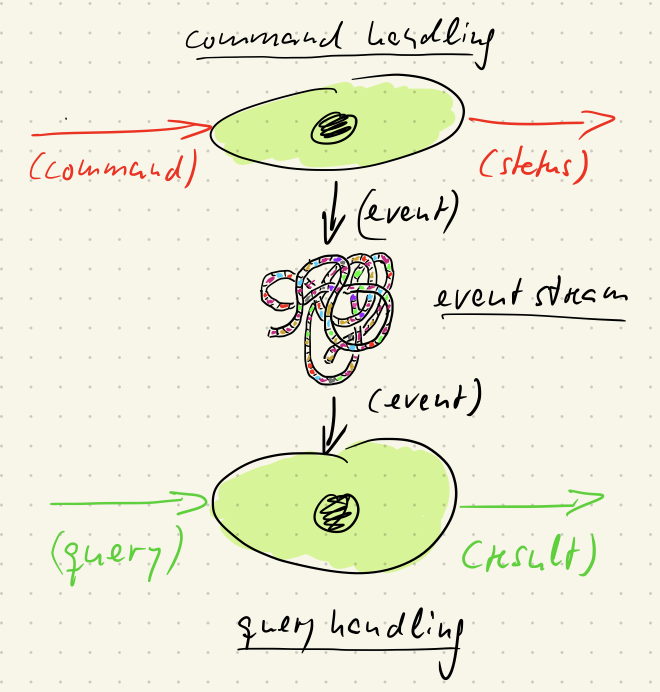 command handling
(command)
(status)
(event)
event stream
(event)
(query)
(result)
query handling